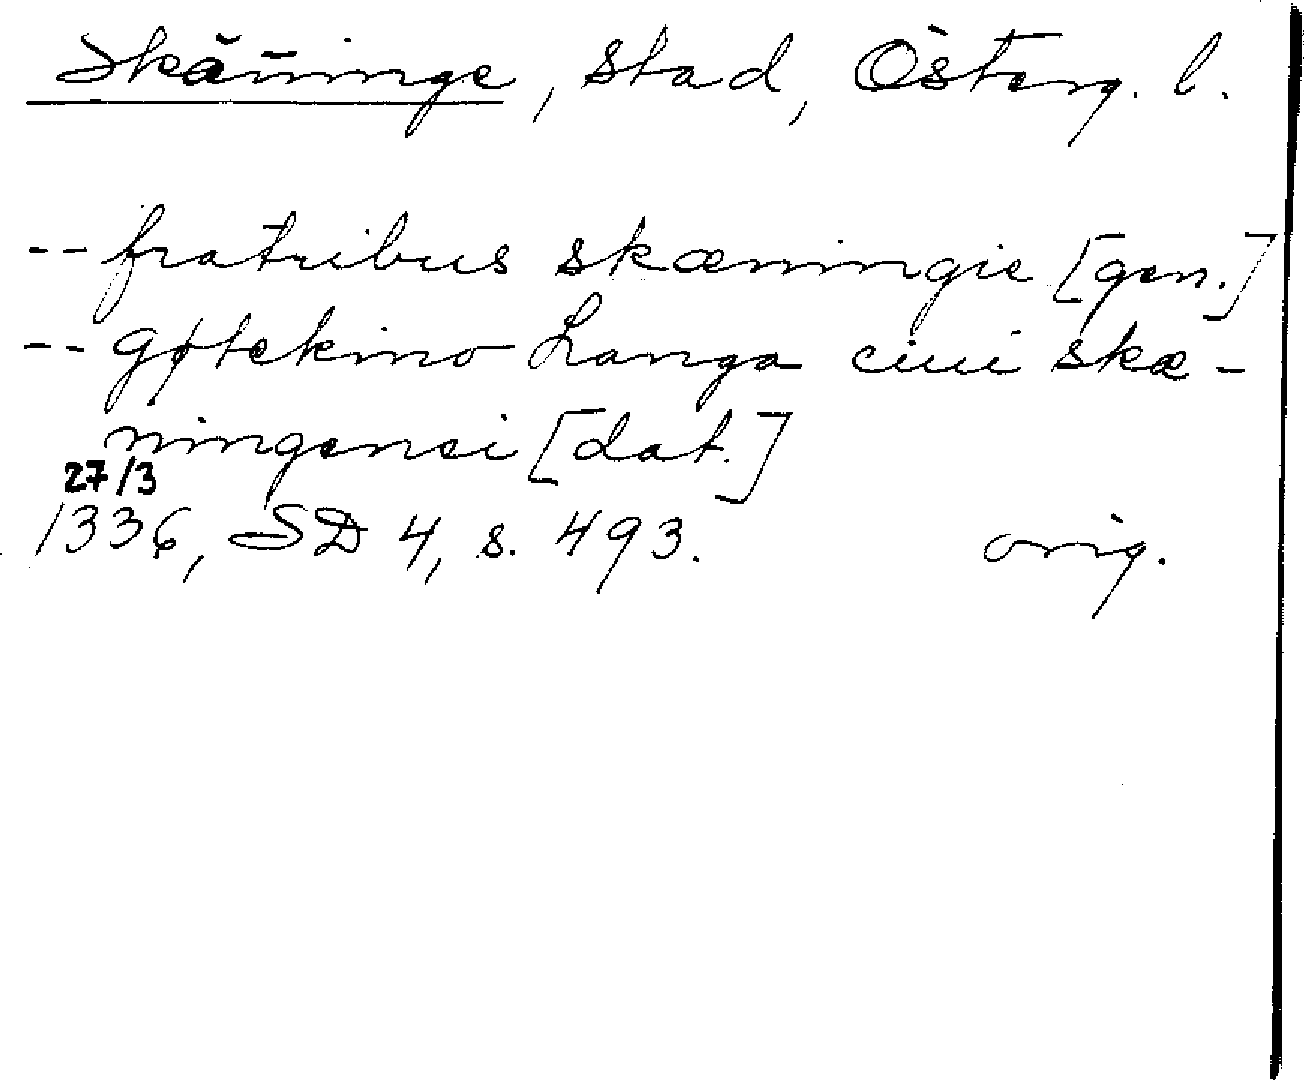 Skänninge, stad, Österg. l.
-- fratribus skæningie [gen.]
-- gøtekino Langa ciui skæ-
ningensi [dat.]
27/3
1336, SD 4, s. 493. orig.